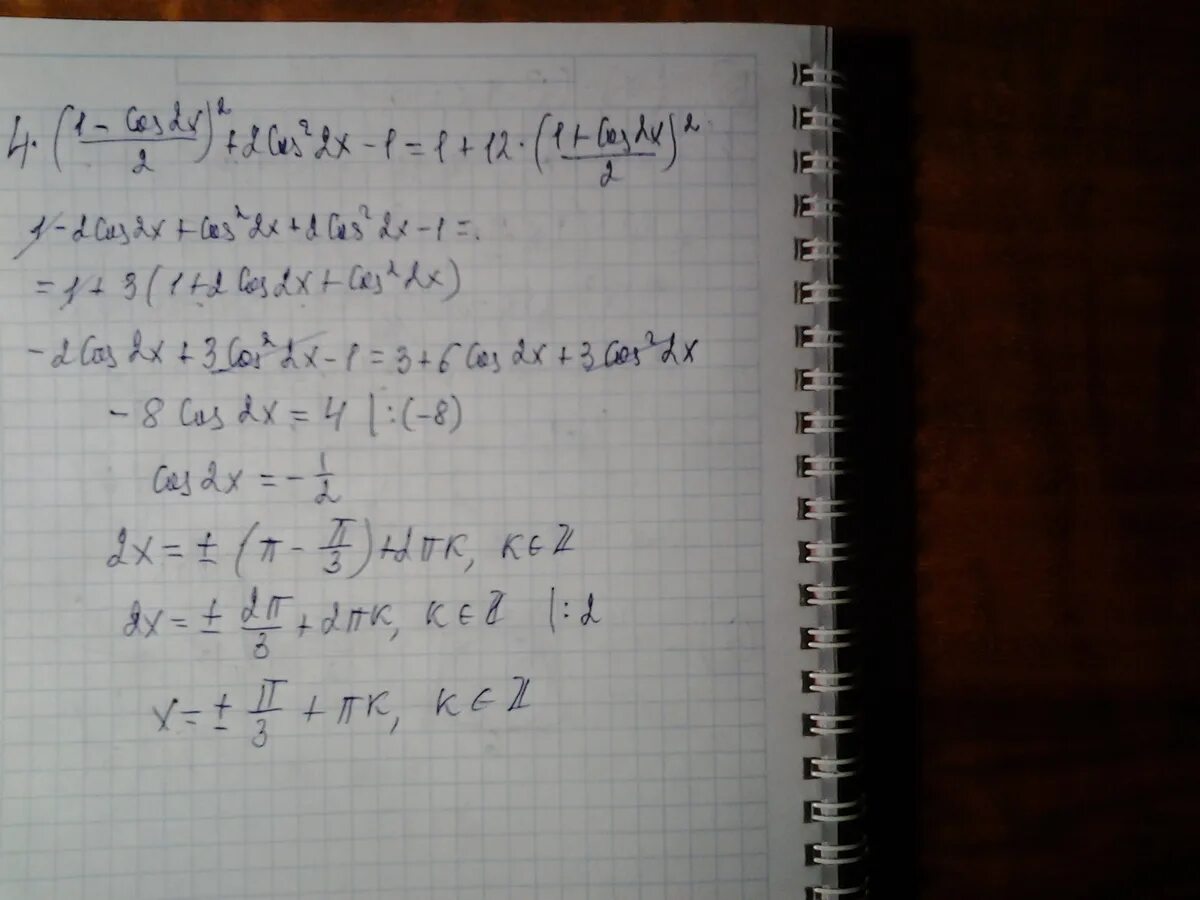 4·((1 - Cos2x)/2)² + 2Cos²2x - 1 = 1 + 12·((1 + Cos2x)/2)²
1 - 2Cos2x + Cos²2x + 2Cos²2x - 1 =
= 1 + 3(1 + 2Cos2x + Cos²2x)
-2Cos2x + 3Cos²2x - 1 = 3 + 6Cos2x + 3Cos²2x
-8Cos2x = 4 |:(-8)
Cos2x = -1/2
2x = ±(π - π/3) + 2πK, K∈Z
2x = ± 2π/3 + 2πK, K∈Z |:2
x = ± π/3 + πK, K∈Z